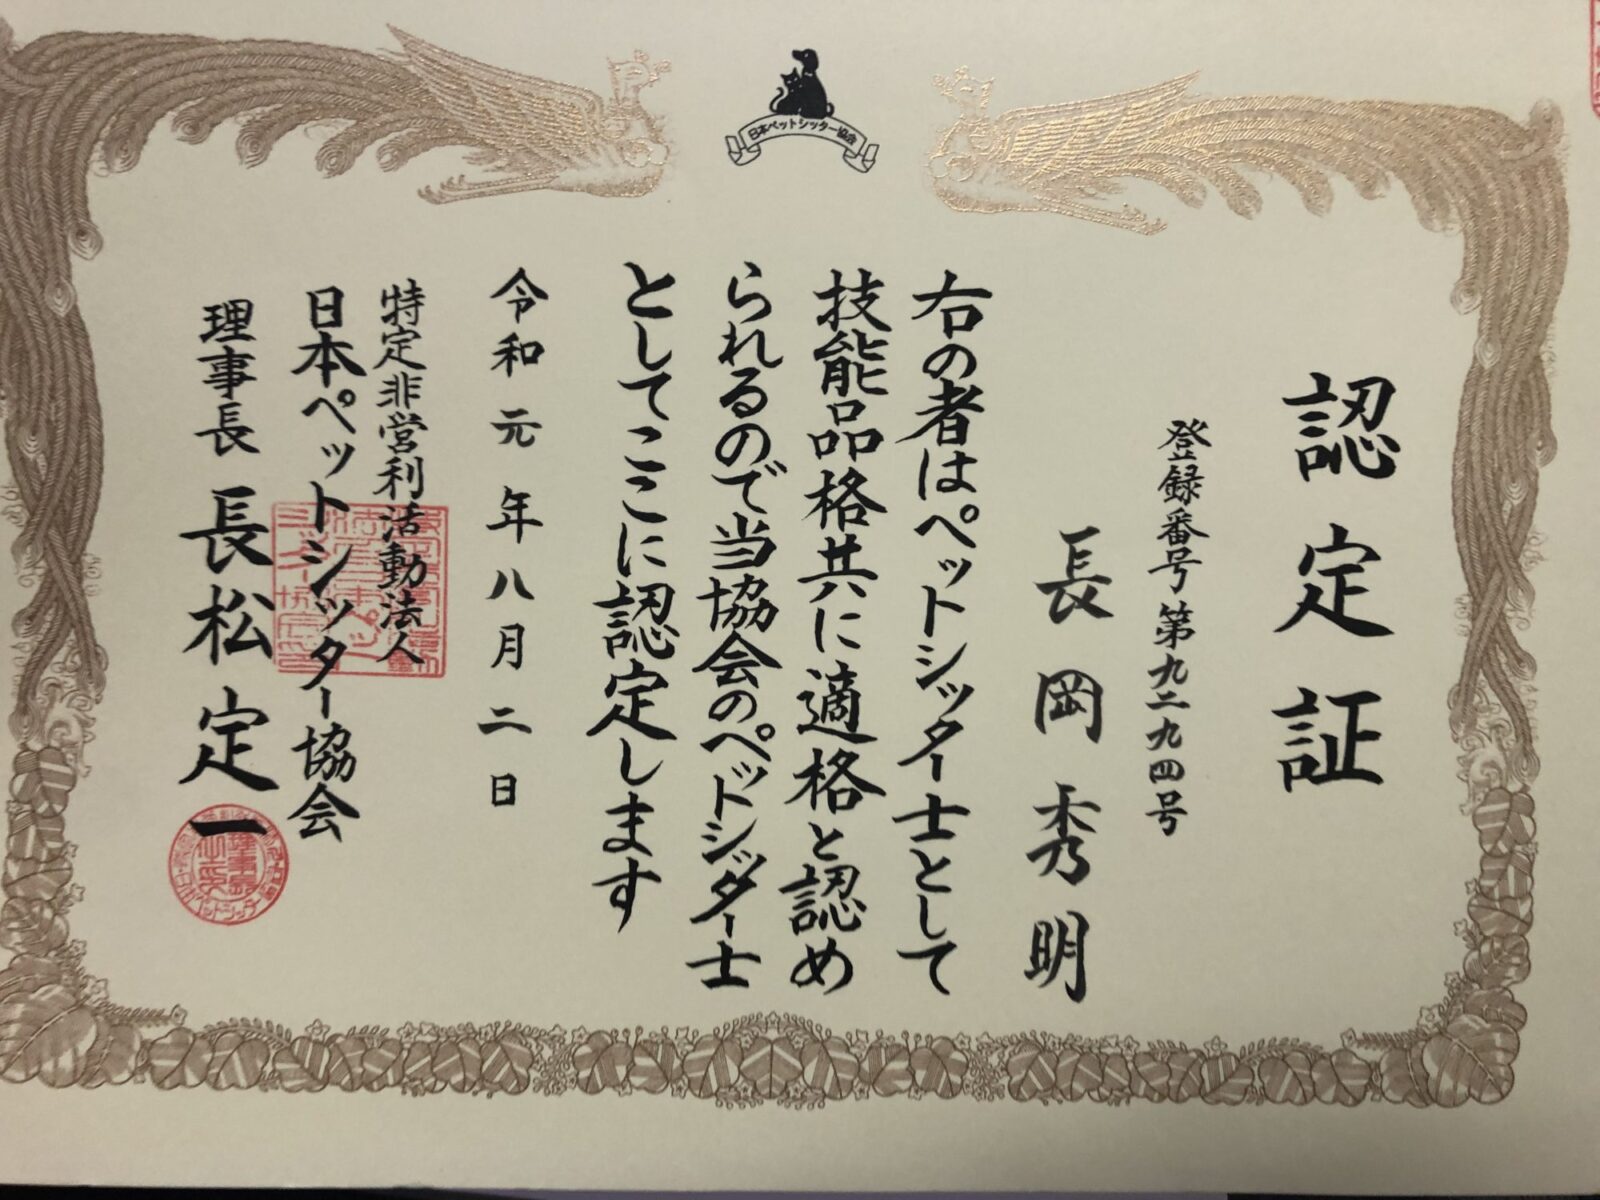 日本ペットシッター協会
認定証
登録番号第九二九九四号
長岡秀明
右の者はペットシッター士として
技能品格共に適格と認め
られるので当協会のペットシッター士
としてここに認定します
令和元年八月二日
特定非営利活動法人
日本ペットシッター協会
理事長 長松定一